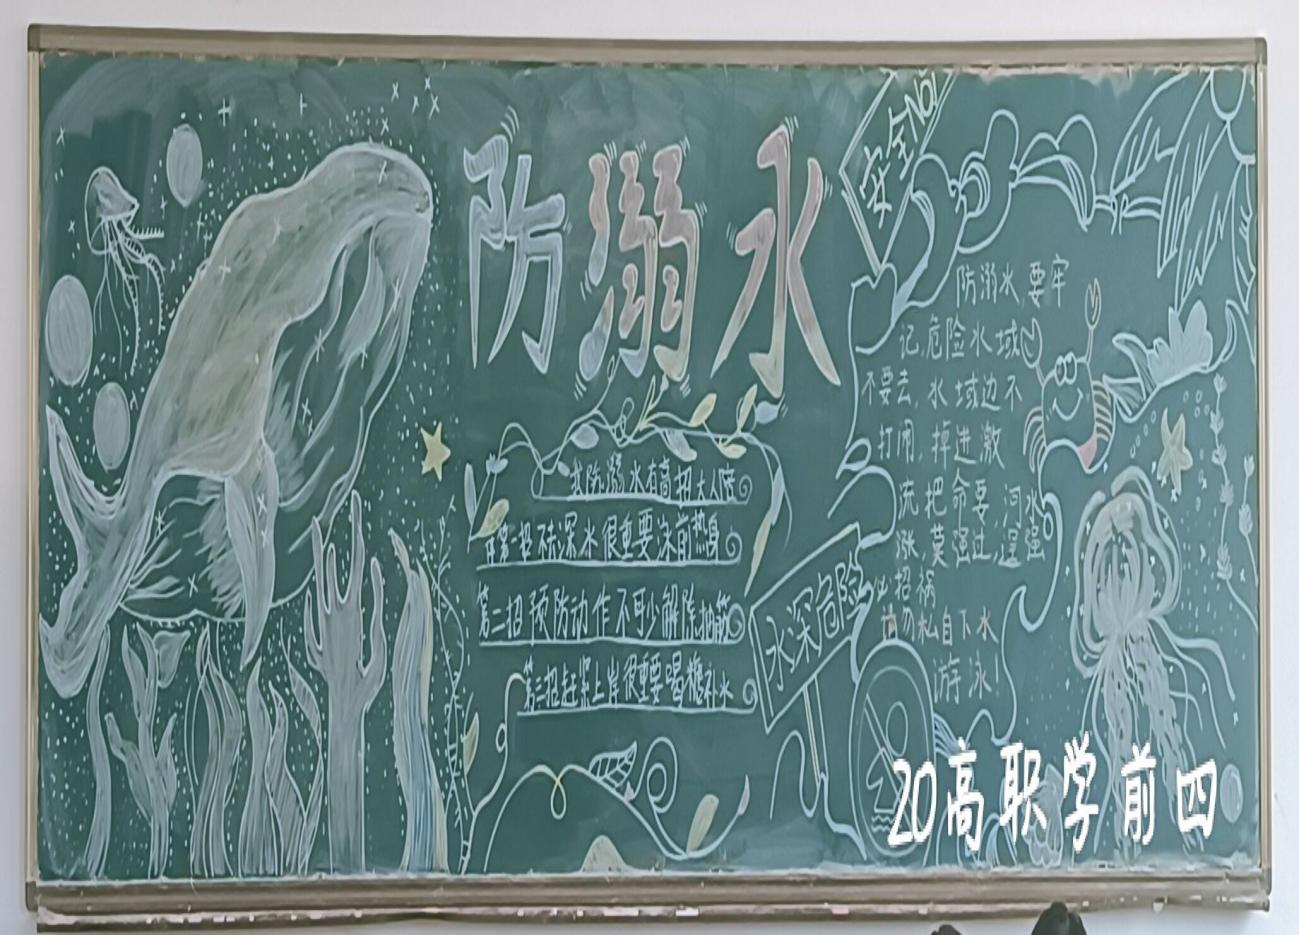 防溺水
安全NO1
我防溺水有高招大人陪
伴第一招不去深水很重要泳前热身
第二招预防动作不可少解除抽筋
第三招赶紧上岸很重要喝糖补水
水深危险
防溺水,要牢
记,危险水域
不要去,水域边不
打闹,掉进激
流把命要,河水
涨,莫强过,逞强
必招祸
请勿私自下水
游泳!
20高职学前四